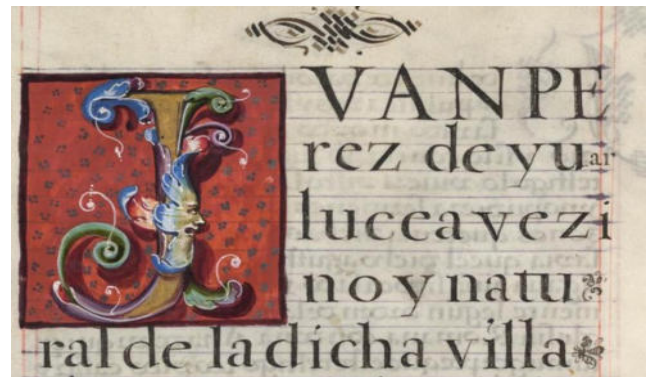 JVANPE
rez de yuar
luceea vezi
no y natu
ral de la dicha villa